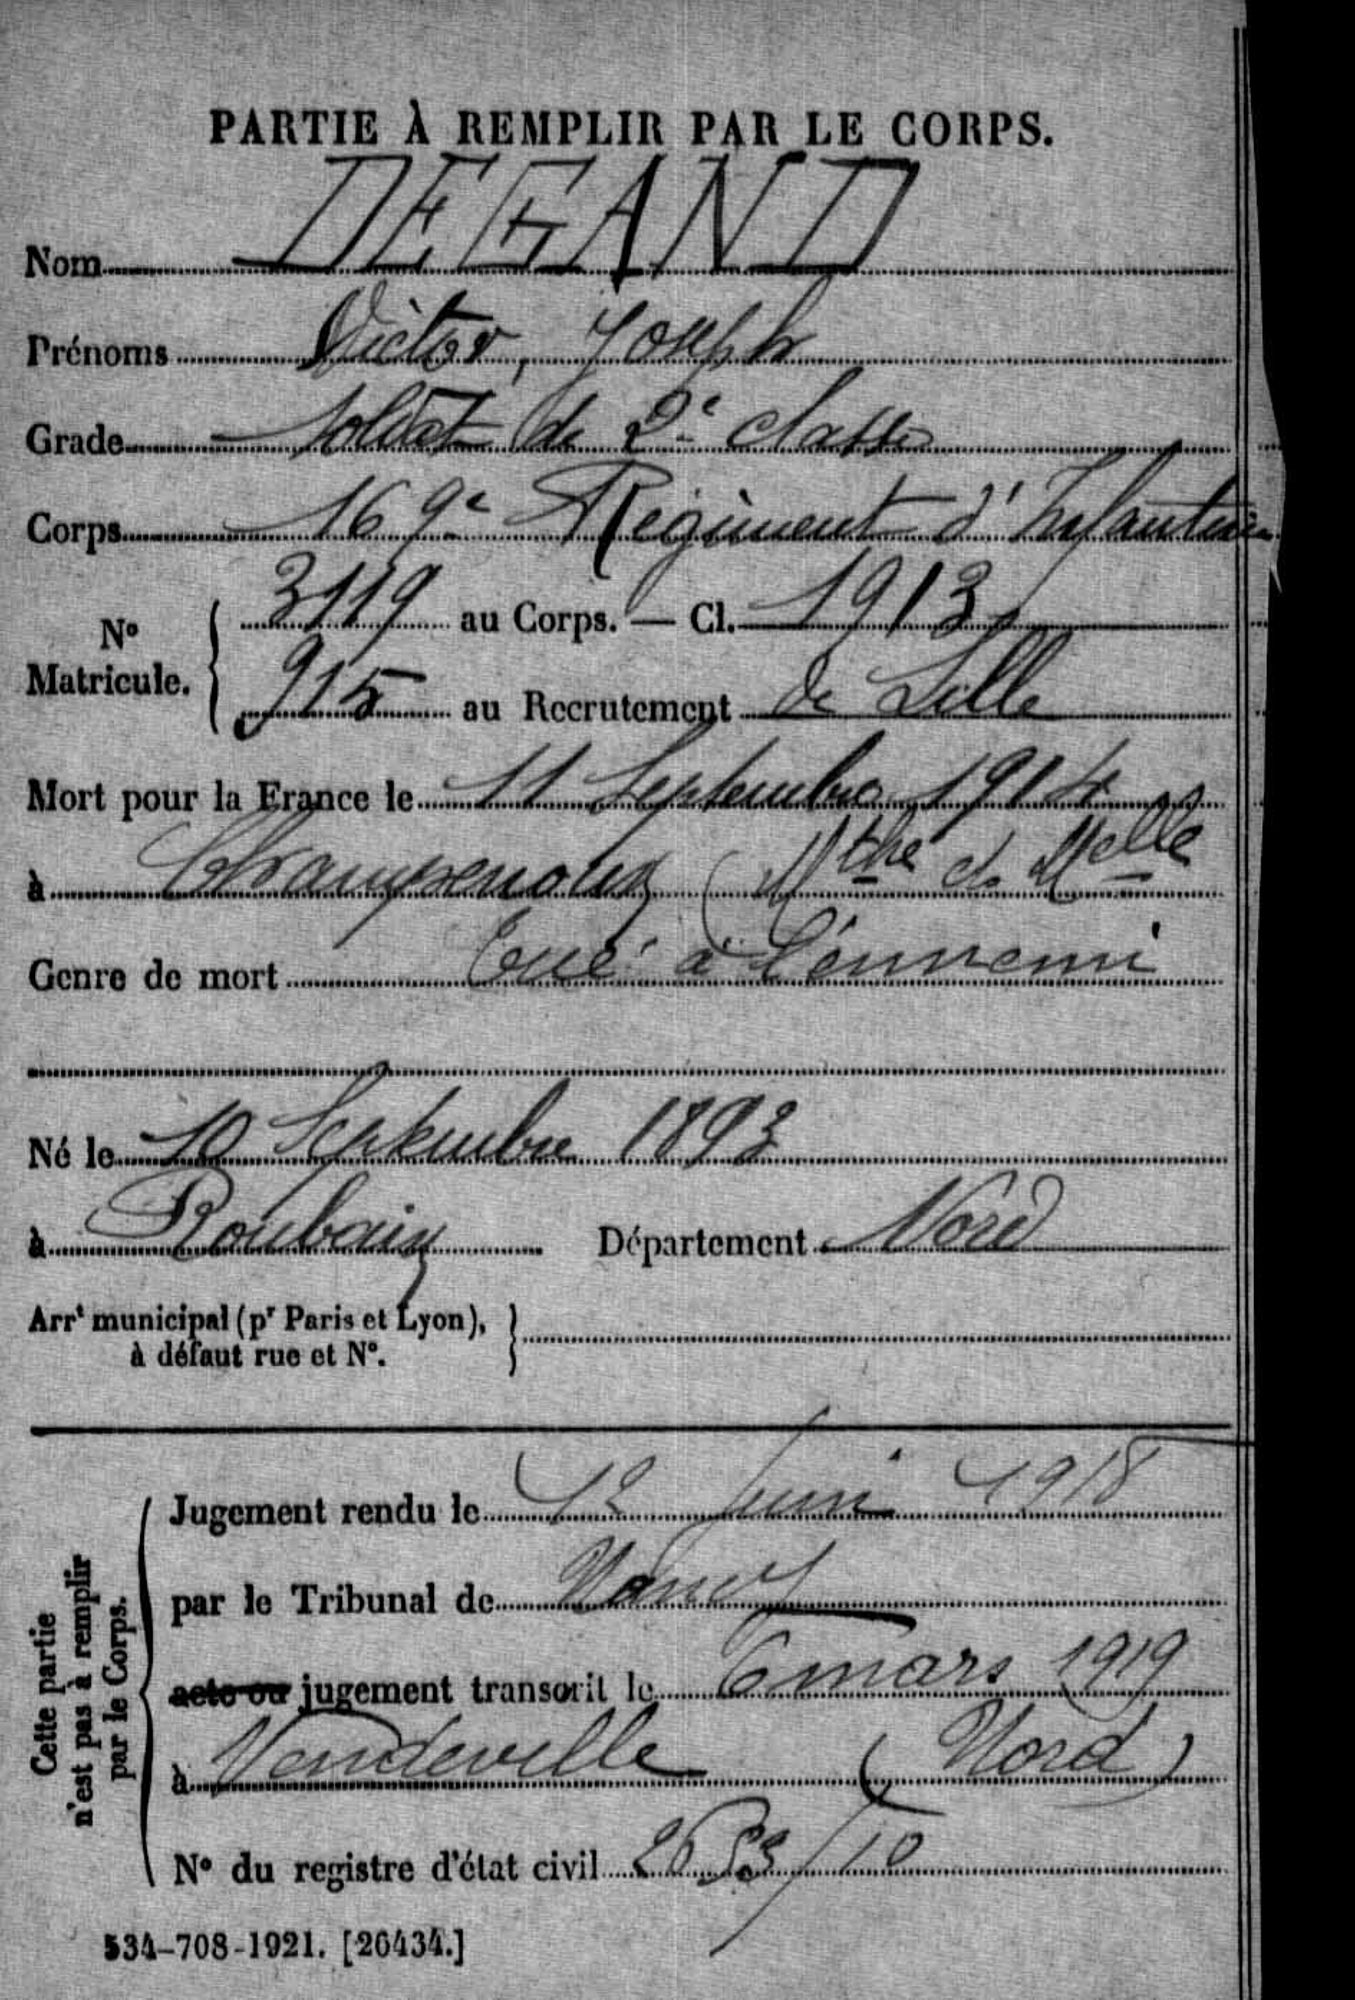 PARTIE À REMPLIR PAR LE CORPS.
Nom DEGAND
Prénoms Victor, Joseph
Grade Soldat de 2e classe
Corps 169e Régiment d'Infanterie
N° Matricule. { 3119 au Corps. — Cl. 1913
915 au Recrutement de Lille
Mort pour la France le 11 Septembre 1914
à Champenoux (Mthe et Melle
Genre de mort Tué à l'ennemi
Né le 10 Septembre 1893
à Roubaix Département Nord
Arrt municipal (pr Paris et Lyon), }
à défaut rue et N°.
Cette partie
n'est pas à remplir
par le Corps.
Jugement rendu le 12 Juin 1918
par le Tribunal de Nancy
acte ou jugement transcrit le 6 mars 1919
à Vendeville (Nord)
N° du registre d'état civil /10
534-708-1921. [26434.]